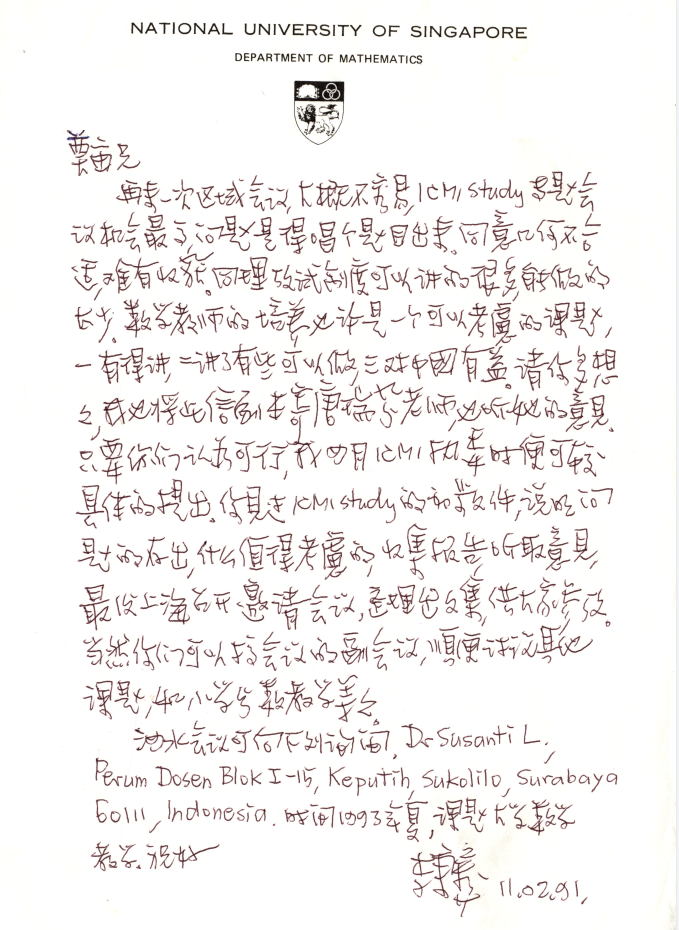 NATIONAL UNIVERSITY OF SINGAPORE
DEPARTMENT OF MATHEMATICS
奠宙兄
再来一次区域会议,大概不容易,ICMI study 专题会
议机会最多,问题是得唱个题目出来.同意几何不合
适,难有收获.同理考试制度可以讲的很多,能做的
太少.数学教师的培养也许是一个可以考虑的课题,
一有得讲,二讲了有些可以做,三对中国有益.请你多想
之,我也将此信副本寄唐瑞芬老师,也听她的意见.
只要你们认为可行,我四月ICMI执委时便可较
具体的提出.你见过ICMI study的初步文件,说明问
题的存在,什么值得考虑的,收集报告,听取意见,
最后上海召开邀请会议,整理出文集,供大家参考.
当然你们可以搞会议的副会议,顺便讨论其他
课题,如小学数教学等.
泗水会议可向下列询问, Dr Susanti L,
Perum Dosen Blok I-15, Keputih, Sukolilo, Surabaya
60111, Indonesia. 时间1993年夏,课题大学数学
教学.祝好
11.02.91.